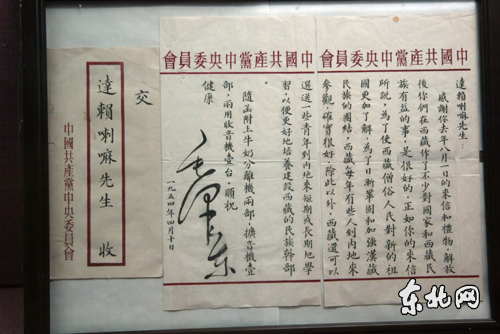 中國共產黨中央委員會
達賴喇嘛先生：
感謝你去年八月一日的來信和禮物。解放
後你們在西藏作了不少對國家和西藏民
族有益的事，是很好的。正如你的來信
所說，為了使西藏僧俗人民對新的祖
國更加了解，為了日新鞏固和加強漢藏
民族的團結，西藏每年有些人到內地來
參觀，確實很好。除此以外，西藏還可以
中國共產黨中央委員會
選送一些青年到內地來短期或長期地學
習，以便更好地培養建設西藏的民族幹部
隨函附上牛奶分離機兩部，擴音機壹
部，兩用收音機壹台。順祝
健康
毛澤东
一九五四年四月十日
交
達賴喇嘛先生 收
中國共產黨中央委員會
东北网